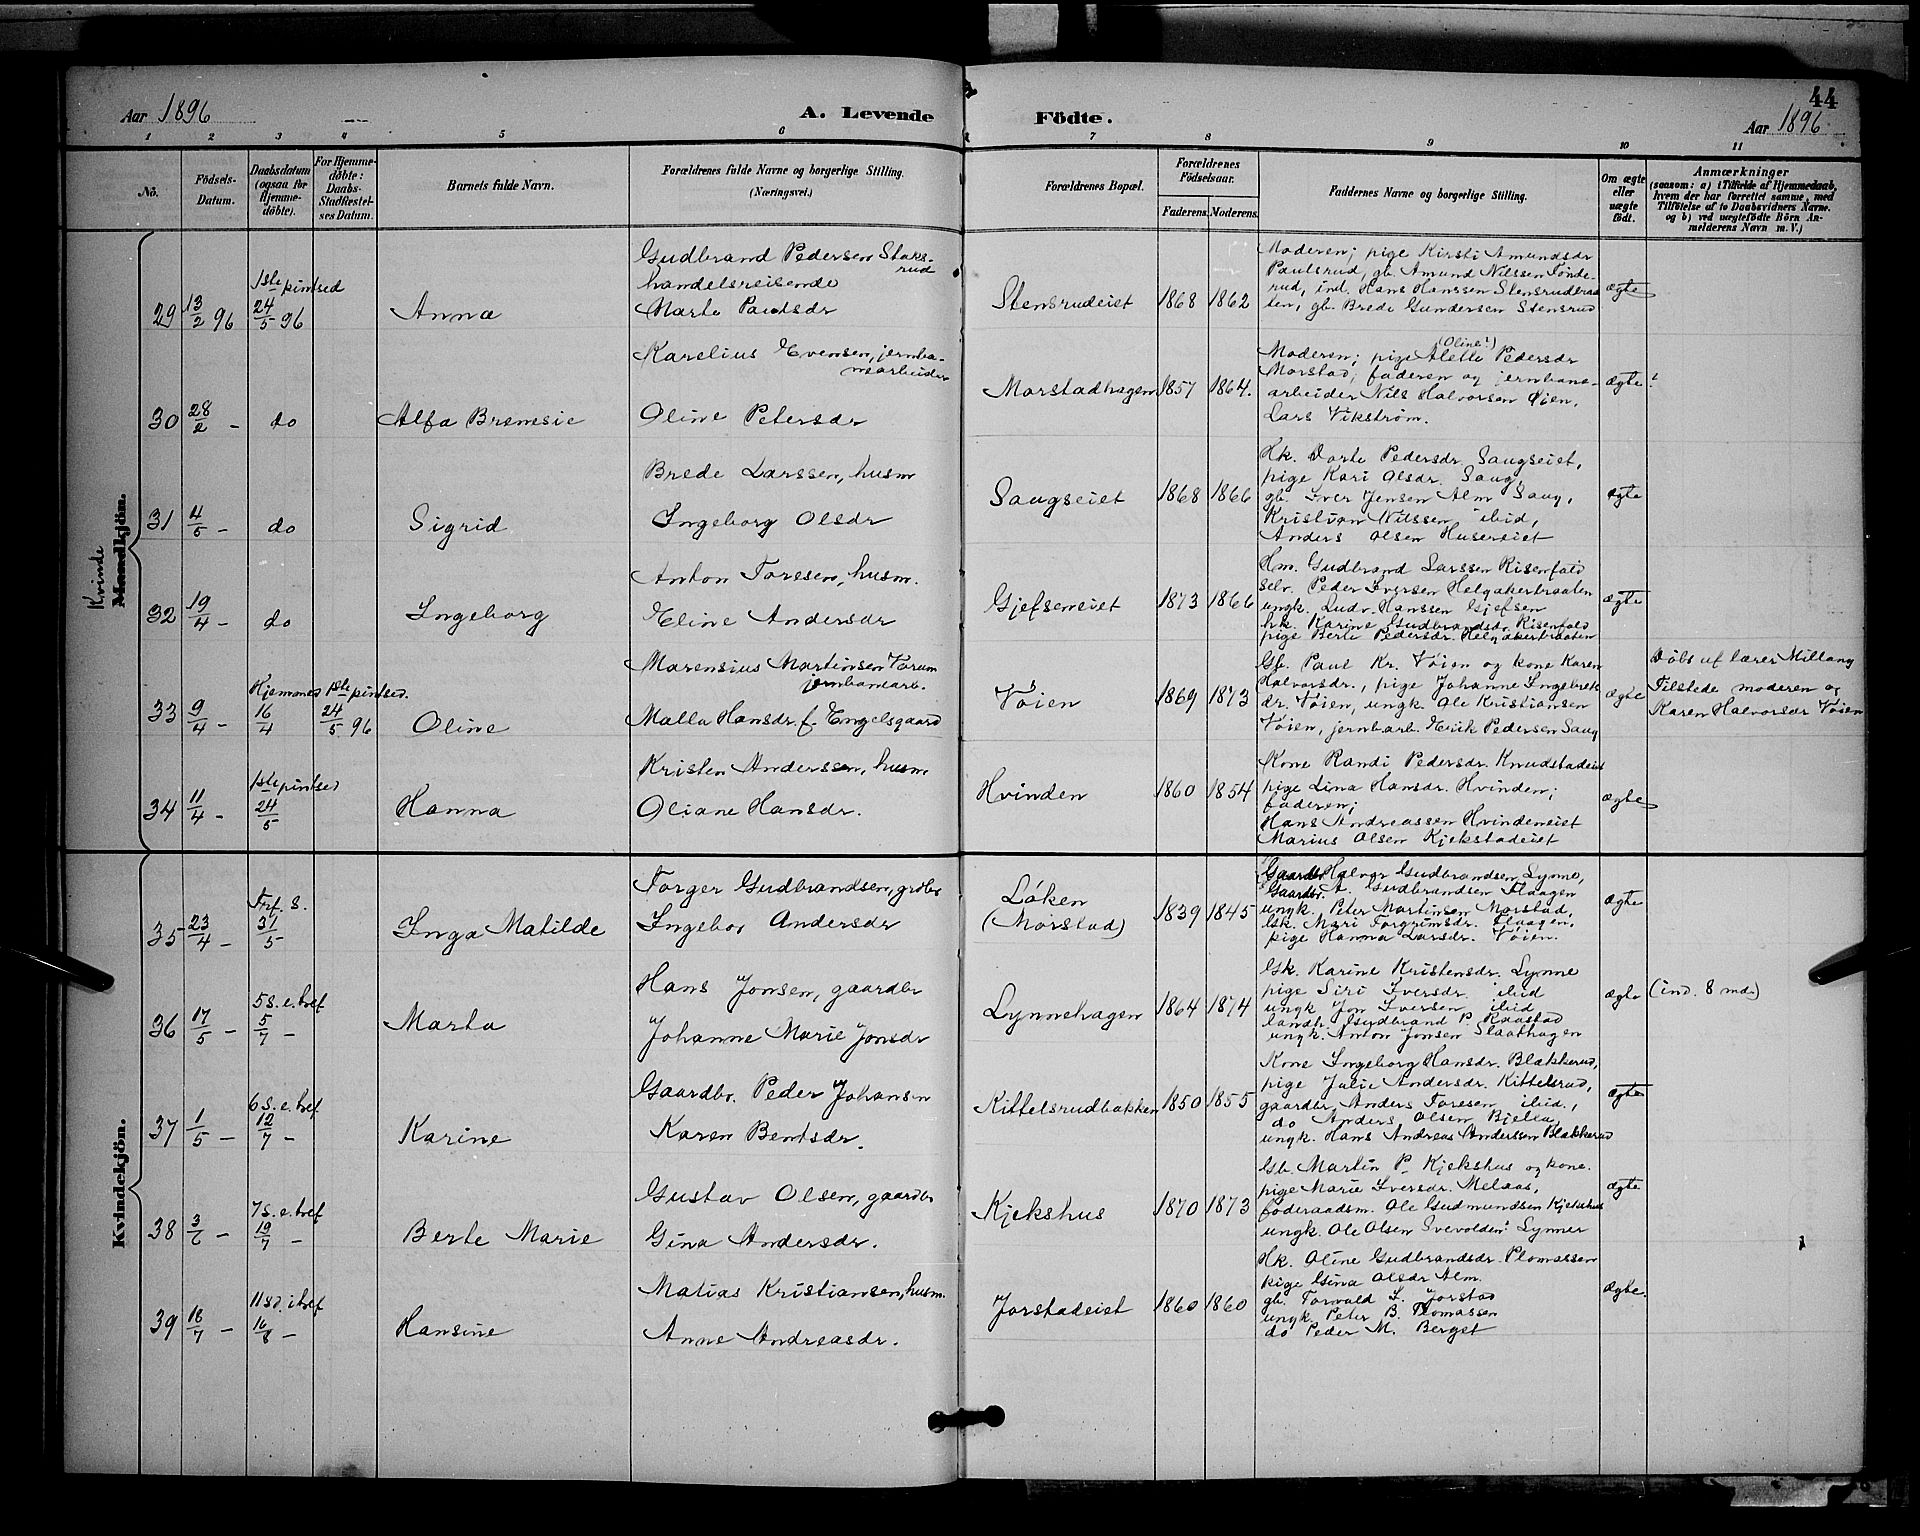 44
Aar 1896
A. Levende Födte.
Aar 1896
1 2 3 4 5 6 7 8 9 10 11
No.
Födsels-Datum.
Daabsdatum (ogsaa for Hjemmedöbte).
For Hjemmedöbte: Daabs-Stadfestelses Datum.
Barnets fulde Navn.
Forældrenes fulde Navne og borgerlige Stilling.
(Næringsvei.)
Forældrenes Bopæl.
Forældrenes Födselsaar.
Faderens. Moderens.
Faddernes Navne og borgerlige Stilling.
Om ægte eller uægte födt.
Anmærkninger
(saasom: a) i Tilfælde af Hjemmedaab,
hvem der har forrettet samme, med
Tilföielse af to Daabsvidners Navne.
og b) ved uægtefödte Börn An-
melderens Navn m. V.)
Kvinde
Mandkjön.
29 13/2 96 1ste pintsed 24/5 96
Anna
Gudbrand Pedersen Staks-
rud
handelsreisende
Marte Paulsdr
Stensrudeiet 1868 1862
Moderen; pige Kirsti Amundsdr
Paulsrud, gb. Amund Nilssen Tønde-
rud, ind. Hans Hanssen Stensrudbraa
ten, gb. Brede Gundersen Stensrud
ægte
30 28/2 - do
Alfa Bremsie
Karelius Evensen, jernba-
nearbeider
Oline Petersdr
Morstadhagen 1857 1864.
(Oline!)
Moderen; pige Alette Pedersdr
Morstad, faderen og jernbane-
arbeider Nils Halvorsen Øien,
Lars Vikstrøm.
ægte!
31 4/5 - do
Sigrid
Brede Larssen, husm
Ingeborg Olsdr
Saugseiet 1868 1866
Hk. Dorte Pedersdr Saugseiet,
pige Kari Olsdr. Saug,
gb. Iver Jensen Alm Saug,
Kristian Nilssen ibid,
Anders Olsen Husereiet
ægte
32 19/4 - do
Ingeborg
Anton Toresen, husm.
Eline Andersdr
Gjefseneiet 1873 1866
Hm. Gudbrand Larssen Risenfald
selv. Peder Iversen Helgakerbraaten
ungk. Ludv. Hanssen Gjefsen
hk. Karine Gudbrandsdr. Risenfald
pige Berte Pedersdr. Helgakerbraaten
ægte
33 9/4 - Hjemmed 16/4 1ste pintsed. 24/5 96
Oline
Marensius Martinsen Torum
jernbanearb.
Malla Hansdr. f. Engelsgaard
Vøien 1869 1873
Gb. Paul Kr. Vøien og kone Karen
Halvorsdr., pige Johanne Ingebrets
dr. Vøien, ungk. Ole Kristiansen
Vøien, jernbarb. Erik Pedersen Saug
ægte
Døbt af lærer Millang
Tilstede moderen og
Karen Halvorsdr Vøien
34 11/4 - 1ste pintsed 24/5
Hanna
Kristen Anderssen, husm
Oliane Hansdr.
Hvinden 1860 1854
Kone Randi Pedersdr. Knudstadeiet
pige Lina Hansdr. Hvinden;
faderen;
Hans Andreassen Hvindeneiet
Marius Olsen Kjekstadeiet
ægte
Kvindekjön.
35 23/4 - Tref. s. 31/5
Inga Matilde
Torger Gudbrandsen, grdbr
Ingebor Andersdr
Løken
(Morstad) 1839 1845
Gaardbr. Halvor Gudbrandsen Lynne,
Gaardbr. A. Gudbrandsen Flaagen
ungk. Peter Martinsen Morstad,
Gk. Mari Torgrimsdr. Flaagen,
pige Hanna Larsdr. Vøien.
ægte
36 17/5 - 5 s. e. tref 5/7 -
Marta
Hans Jonsen, gaardbr
Johanne Marie Jonsdr
Lynnehagen 1864 1874
Gk. Karine Kristensdr. Lynne
pige Siri Iversdr. ibid
ungk Jon Iversen ibid
landh. Gudbrand P. Raastad
ungk. Anton Jonsen Slaathagen
ægte
(ind. 8 md.)
37 1/5 - 6 s. e. tref 12/7 -
Karine
Gaardbr. Peder Johansen
Karen Bentsdr.
Kittelsrudbakken 1850 1855
Kone Ingeborg Hansdr. Blækkerud,
pige Julie Andersdr. Kittelsrud,
gaardbr. Anders Toresen ibid.,
do Anders Olsen Bjella,
ungk. Hans Andreas Anderssen Blækkerud
ægte
38 3/6 - 7 s. e. tref 19/7 -
Berte Marie
Gustav Olsen, gaardbr
Gina Andersdr.
Kjekshus 1870 1873
Gb. Martin P. Kjekshus og kone.
pige Marie Iversdr. Melaas,
føderaadsm. Ole Gudmundsen Kjekshus
ungk. Ole Olsen Svevolden! Lynner
ægte
39 18/7 - 11 sd. i tref 16/8 -
Hansine
Matias Kristiansen, husm.
Anne Andreasdr.
Jorstadeiet 1860 1860
Hk. Oline Gudbrandsdr. Plomassen
pige Gina Olsdr Alm.
gb. Torvald L. Jorstad
ungk. Peter B. Plomassen
do Peder M. Berget
ægte.